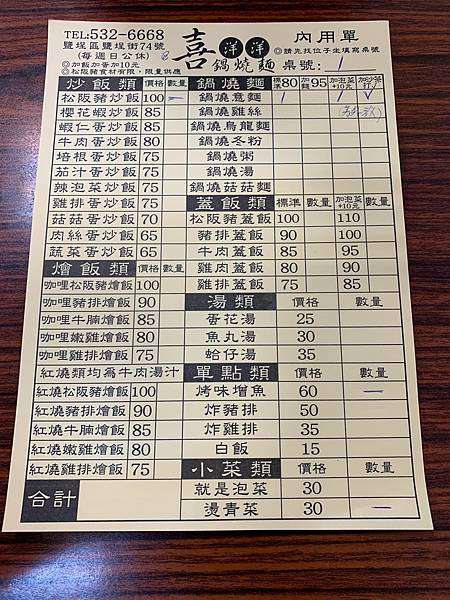 TEL:532-6668 喜洋洋 內用單
鹽埕區鹽埕街74號 鍋燒麵 ◎請先找位子坐填寫桌號
(每週日公休) 桌號: 1
◎加飯加蛋加10元
◎松阪豬食材有限,限量供應
炒飯類 價格 數量 鍋燒麵 標準80 加麵95 加泡菜+10元 加沙茶打✓
松阪豬炒飯 100 一 鍋燒意麵 1 1 ✓
櫻花蝦炒飯 85 鍋燒雞絲
蝦仁蛋炒飯 85 鍋燒烏龍麵
牛肉蛋炒飯 80 鍋燒冬粉
培根蛋炒飯 75 鍋燒粥
茄汁蛋炒飯 75 鍋燒湯
辣泡菜炒飯 75 鍋燒菇菇麵
雞排蛋炒飯 75 蓋飯類 標準 數量 加泡菜+10元 數量
菇菇蛋炒飯 70 松阪豬蓋飯 100 110
肉絲蛋炒飯 65 豬排蓋飯 90 100
蔬菜蛋炒飯 65 牛肉蓋飯 85 95
燴飯類 價格 數量 雞肉蓋飯 80 90
咖哩松阪豬燴飯 100 雞排蓋飯 75 85
咖哩豬排燴飯 90 湯類 價格 數量
咖哩牛腩燴飯 85 蛋花湯 25
咖哩嫩雞燴飯 80 魚丸湯 30
咖哩雞排燴飯 75 蛤仔湯 35
紅燒類均為牛肉湯汁 單點類 價格 數量
紅燒松阪豬燴飯 100 烤味增魚 60 一
紅燒豬排燴飯 90 炸豬排 50
紅燒牛腩燴飯 85 炸雞排 35
紅燒嫩雞燴飯 80 白飯 15
紅燒雞排燴飯 75 小菜類 價格 數量
合計 就是泡菜 30
燙青菜 30 一